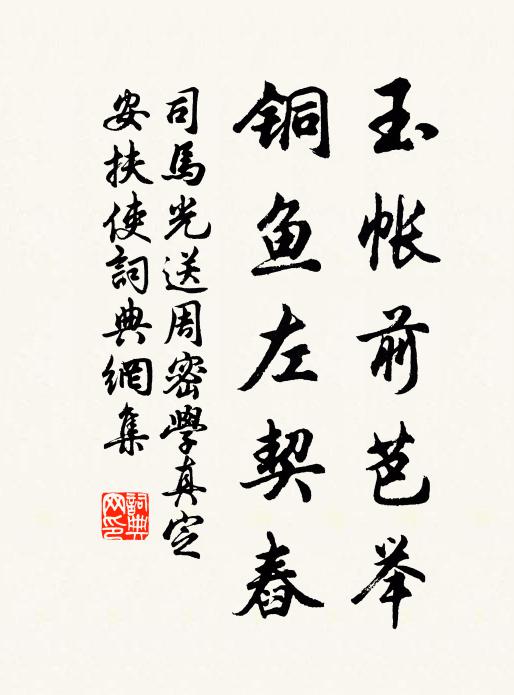 玉帐前芭举
铜鱼左契春
司馬光送周密學真定
安扶使詞典網集
詞典
网印